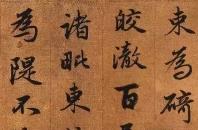 東為碕
皎澈百
諸毗東
為隄不